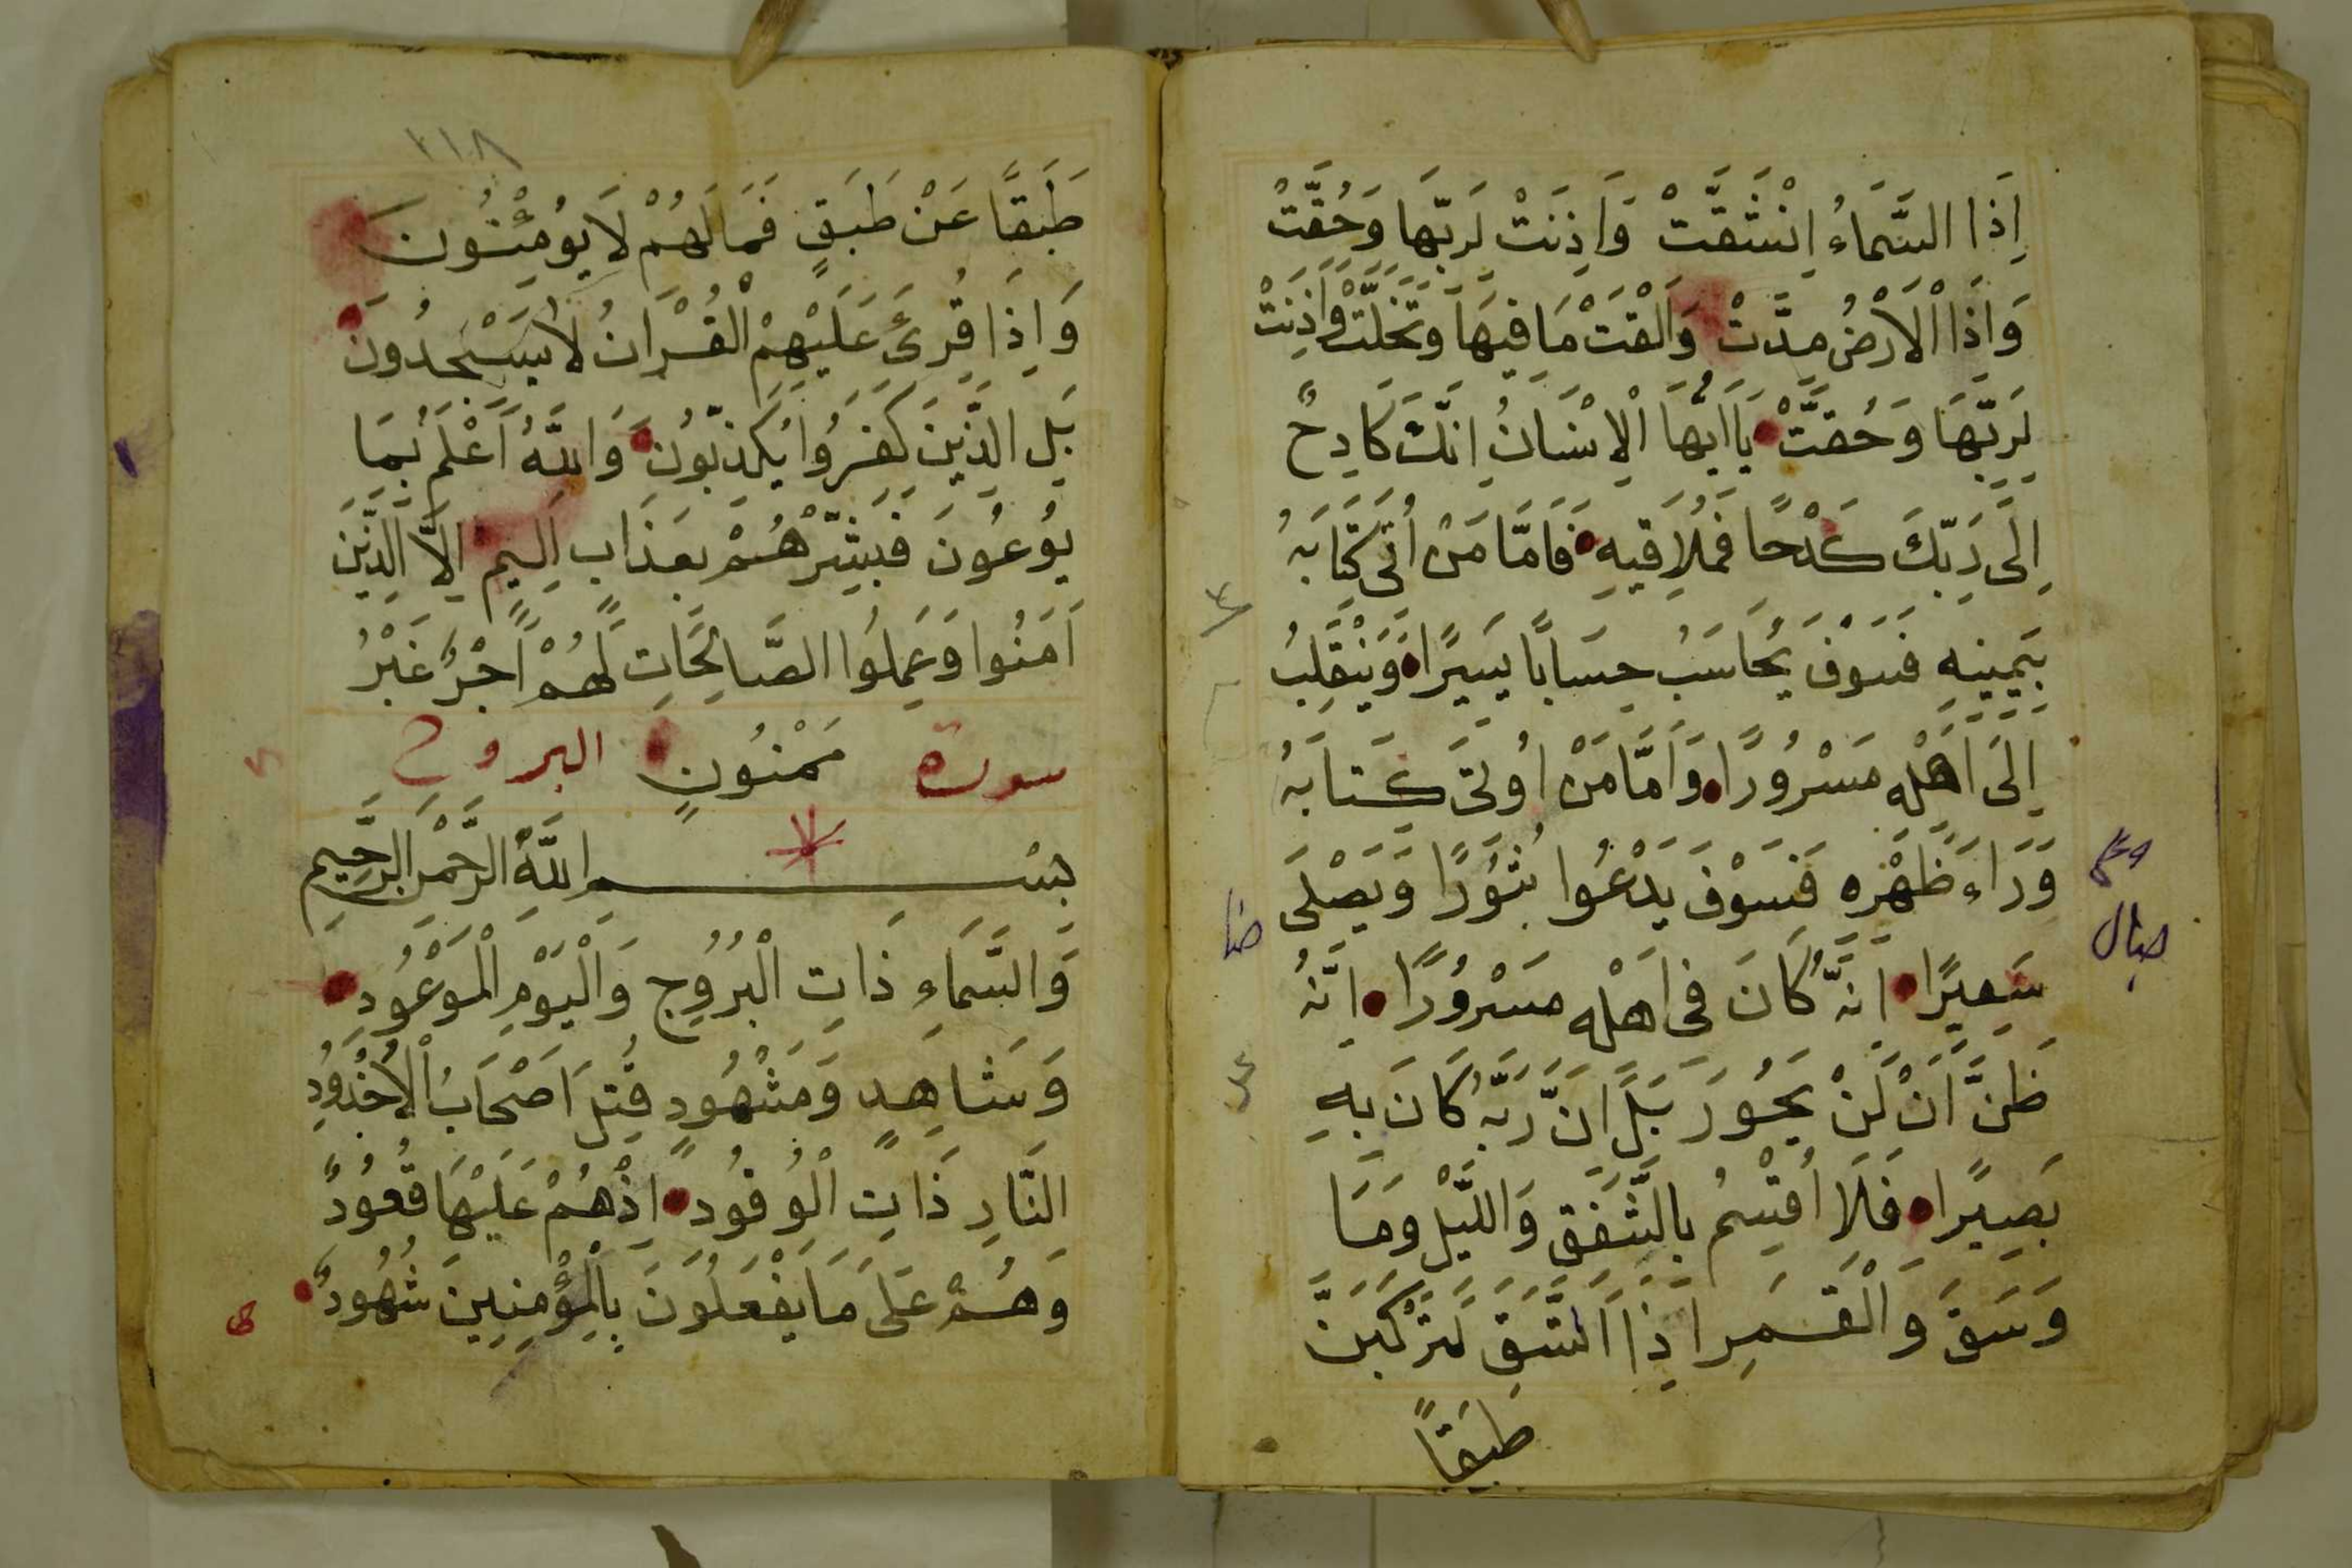 اِذَا السَّمَاءُ اِنْشَقَّتْ وَاَذِنَتْ لِرَبِّهَا وَحُقَّتْ
وَاِذَا الْاَرْضُ مُدَّتْ وَاَلْقَتْ مَا فِيهَا وَتَخَلَّتْ وَاَذِنَتْ
لِرَبِّهَا وَحُقَّتْ يَا اَيُّهَا الْاِنْسَانُ اِنَّكَ كَادِحٌ
اِلَى رَبِّكَ كَدْحًا فَمُلَاقِيهِ فَاَمَّا مَنْ اُتِىَ كِتَابَهُ
بِيَمِينِهِ فَسَوْفَ يُحَاسَبُ حِسَابًا يَسِيرًا وَيَنْقَلِبُ
اِلَى اَهْلِهِ مَسْرُورًا وَاَمَّا مَنْ اُوتِىَ كِتَابَهُ
وَرَاءَ ظَهْرِهِ فَسَوْفَ يَدْعُوا ثُبُورًا وَيَصْلَى
سَعِيرًا اِنَّهُ كَانَ فِى اَهْلِهِ مَسْرُورًا اِنَّهُ
ظَنَّ اَنْ لَنْ يَحُورَ بَلَى اِنَّ رَبَّهُ كَانَ بِهِ
بَصِيرًا فَلَا اُقْسِمُ بِالشَّفَقِ وَاللَّيْلِ وَمَا
وَسَقَ وَالْقَمَرِ اِذَا اتَّسَقَ لَتَرْكَبُنَّ
طَبَقًا
٣١٨
طَبَقًا عَنْ طَبَقٍ فَمَا لَهُمْ لَا يُؤْمِنُونَ
وَاِذَا قُرِئَ عَلَيْهِمُ الْقُرْاٰنُ لَا يَسْجُدُونَ
بَلِ الَّذِينَ كَفَرُوا يُكَذِّبُونَ وَاللَّهُ اَعْلَمُ بِمَا
يُوعُونَ فَبَشِّرْهُمْ بِعَذَابٍ اَلِيمٍ اِلَّا الَّذِينَ
اٰمَنُوا وَعَمِلُوا الصَّالِحَاتِ لَهُمْ اَجْرٌ غَيْرُ
سورة مَمْنُونٍ البروج
بِسْمِ اللَّهِ الرَّحْمٰنِ الرَّحِيمِ
وَالسَّمَاءِ ذَاتِ الْبُرُوجِ وَالْيَوْمِ الْمَوْعُودِ
وَشَاهِدٍ وَمَشْهُودٍ قُتِلَ اَصْحَابُ الْاُخْدُودِ
النَّارِ ذَاتِ الْوُقُودِ اِذْ هُمْ عَلَيْهَا قُعُودٌ
وَهُمْ عَلَى مَا يَفْعَلُونَ بِالْمُؤْمِنِينَ شُهُودٌ